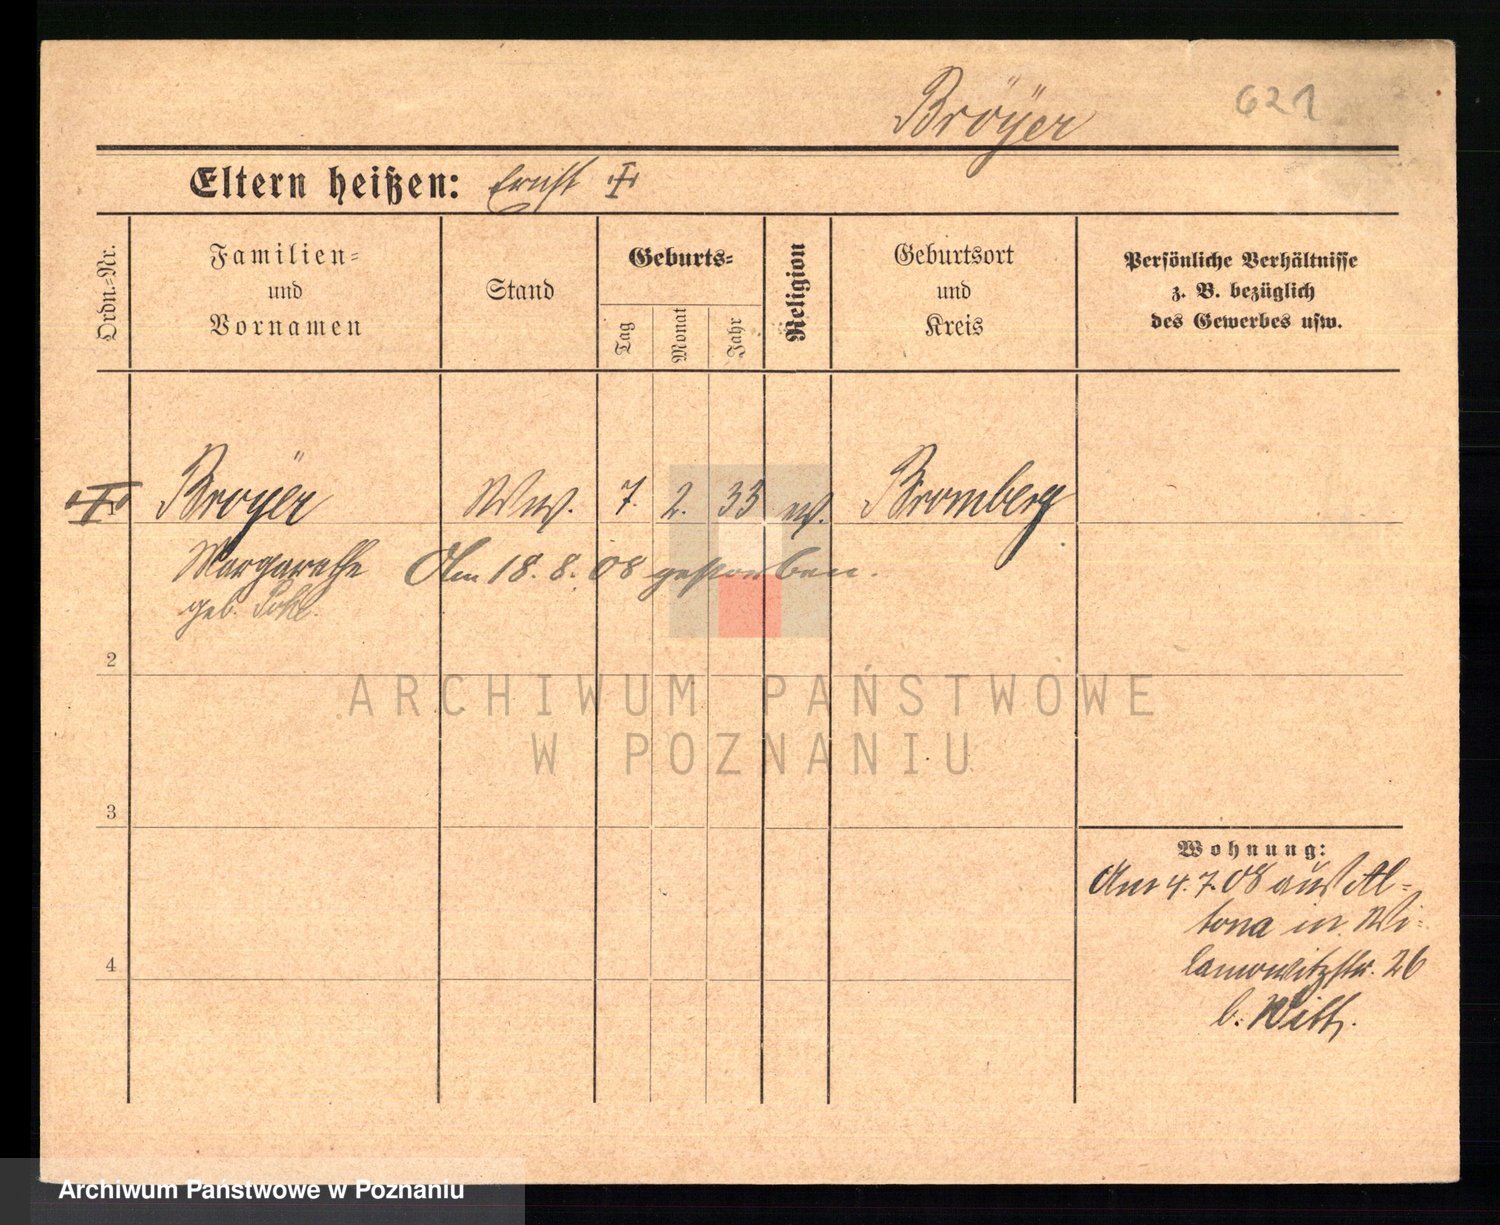 621
Bröÿer
Eltern heißen: Ernst
Ordn.-Nr.
Familien-
und
Vornamen
Stand
Geburts-
Tag
Monat
Jahr
Religion
Geburtsort
und
Kreis
Persönliche Verhältnisse
z. B. bezüglich
des Gewerbes usw.
Broÿer Ww. 7. 2. 33 ev. Bromberg
Margarethe Am 18. 8. 08 gestorben.
geb.
2
ARCHIWUM PAŃSTWOWE
W POZNANIU
3
Wohnung:
Am 4.7.08 aus Al-
tona in Wi-
lamowitzstr. 26
b. Witt.
4
Archiwum Państwowe w Poznaniu